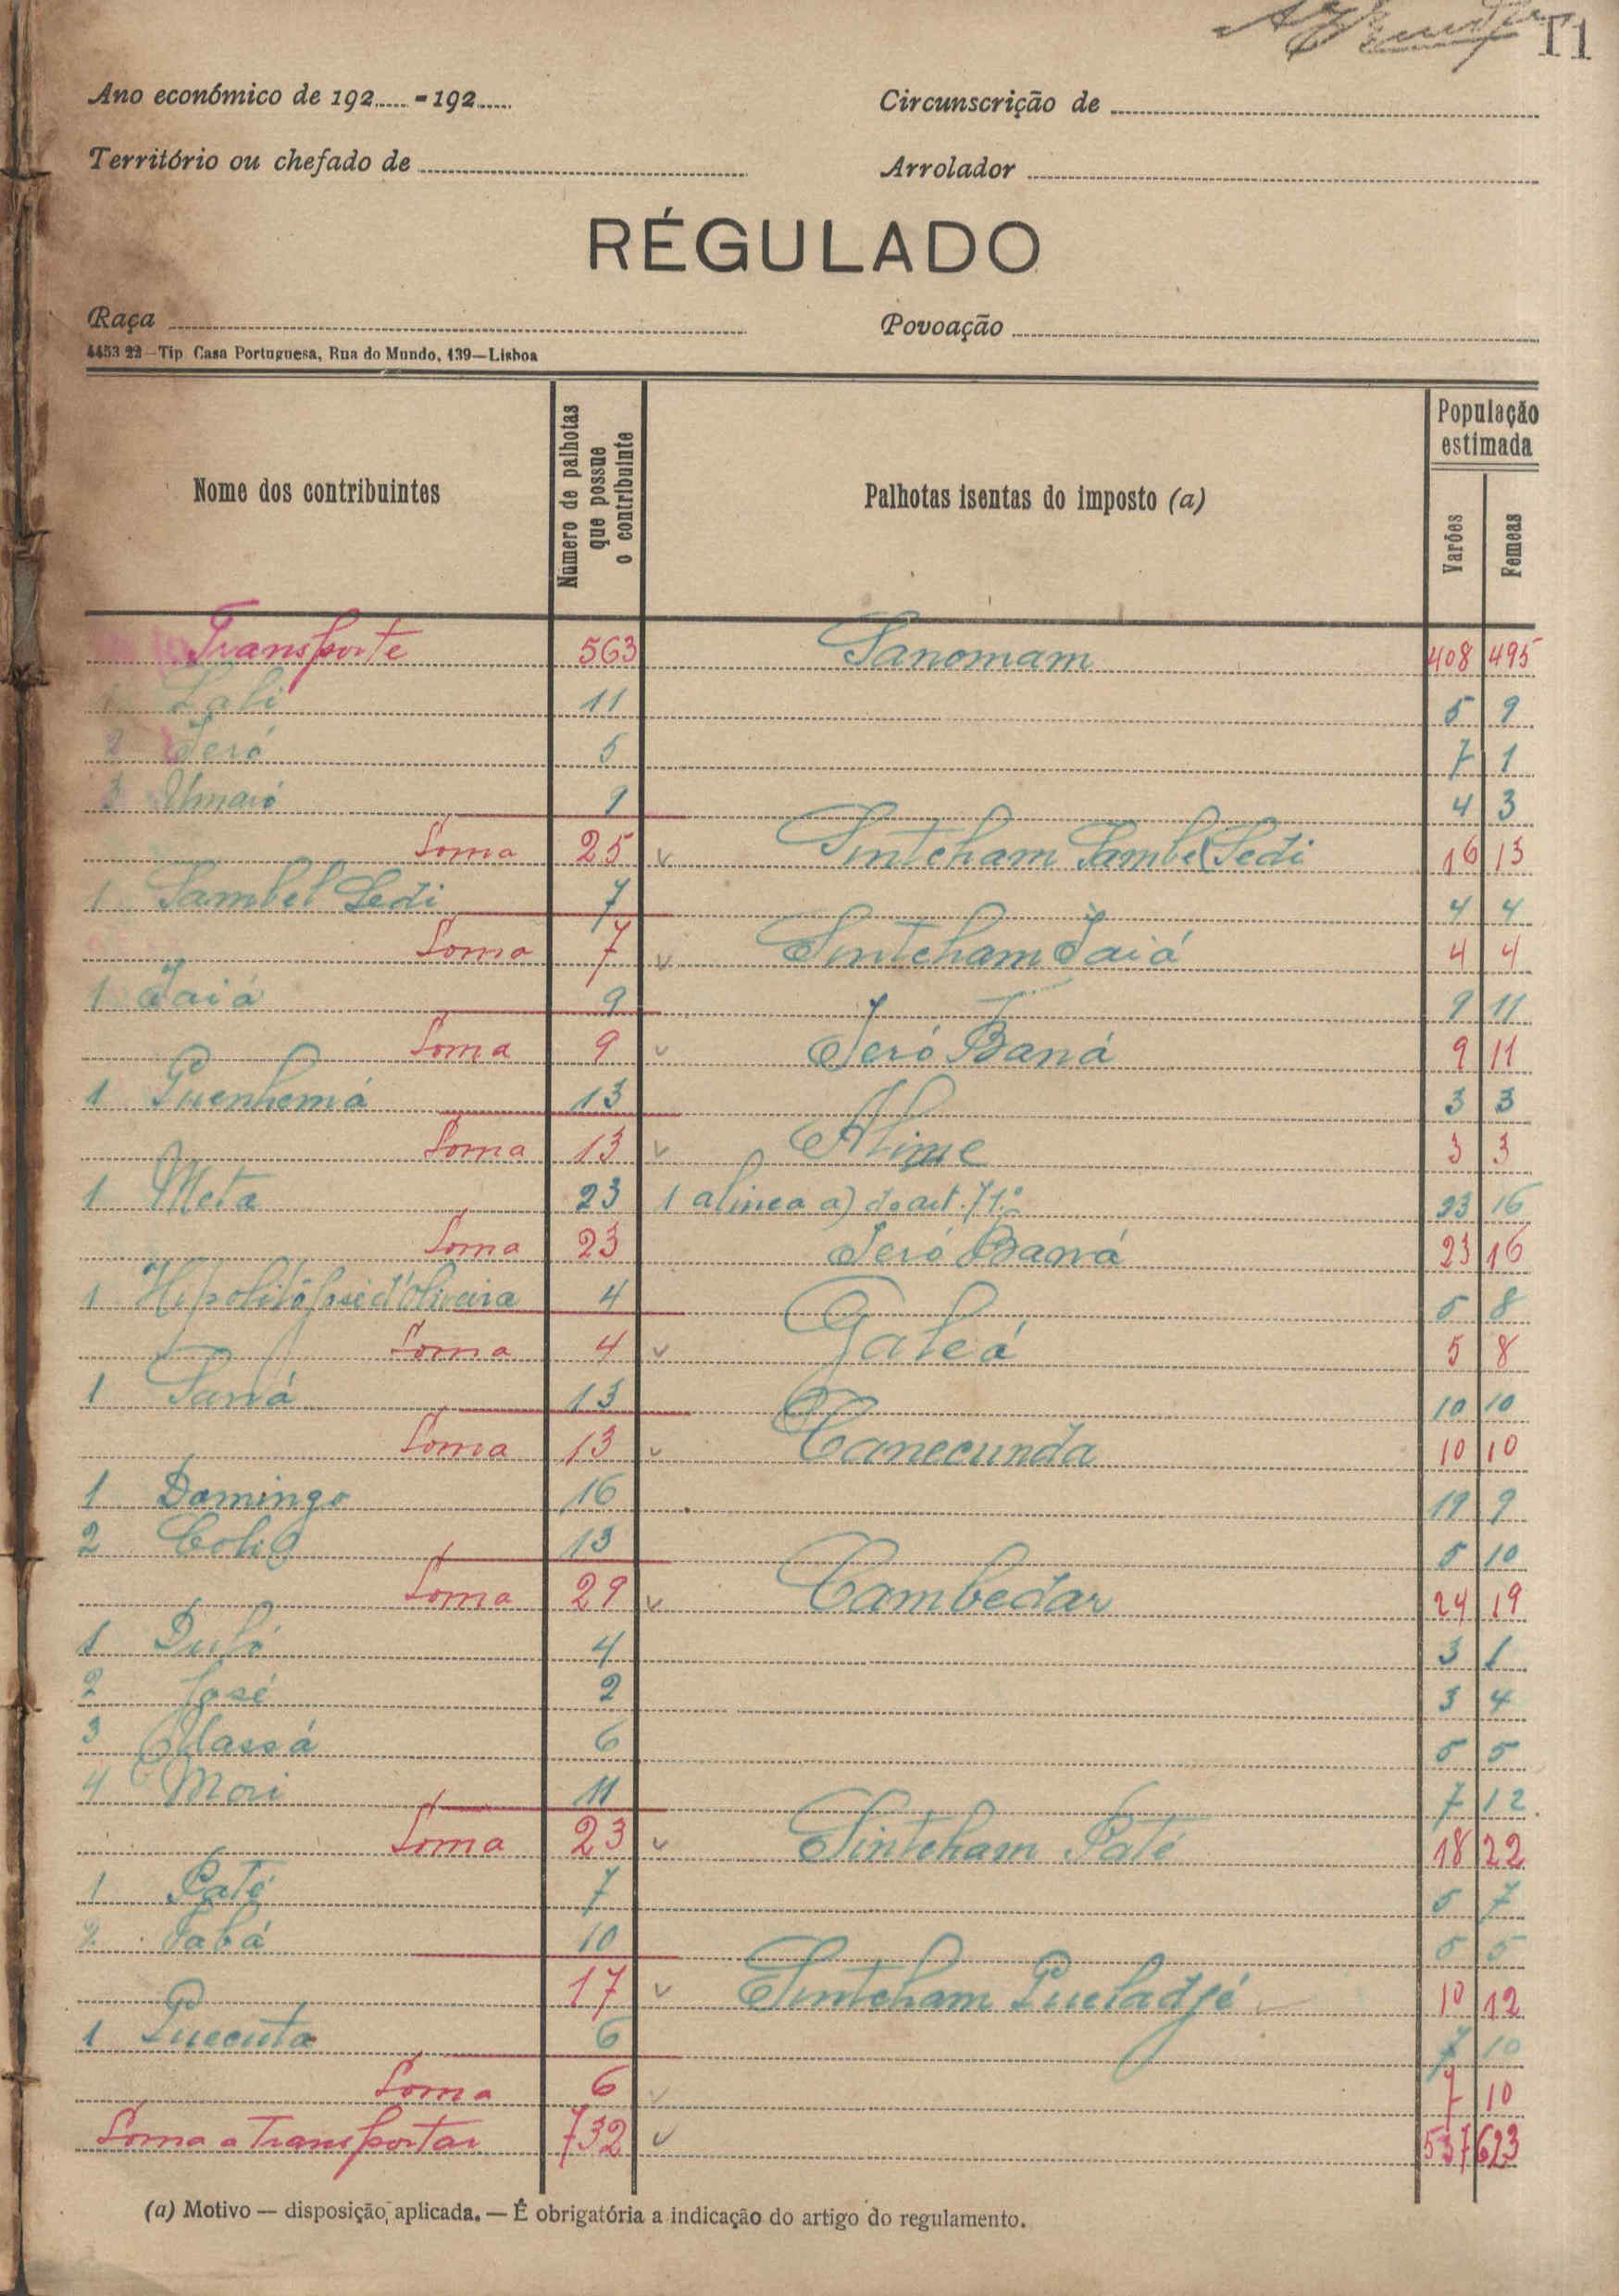 11
Ano económico de 192...... - 192...... Circunscrição de
Território ou chefado de Arrolador
RÉGULADO
Raça Povoação
4453 22—Tip. Casa Portuguesa, Rua do Mundo, 139—Lisboa
Nome dos contribuintes Número de palhotas que possue o contribuinte Palhotas isentas do imposto (a) População estimada Varões Femeas
Transporte 563 Sanomam 408 495
1 Lali 11 5 9
2 Jeró 5 7 1
3 Umaró 9 4 3
Soma 25 Sintcham Sambel Sedi 16 13
1 Sambel Sedi 7 4 4
Soma 7 Sintcham Jaiá 4 4
1 Jaiá 9 9 11
Soma 9 Jeró Baná 9 11
1 Quenhemá 13 3 3
Soma 13 Alime 3 3
1 Meta 23 1 alinea a) do art. 71.º 23 16
Soma 23 Jeró Baná 23 16
1 Hipolito José d'Oliveira 4 5 8
Soma 4 Galeá 5 8
1 Saná 13 10 10
Soma 13 Canecunda 10 10
1 Domingo 16 19 9
2 13 5 10
Soma 29 Cambedar 24 19
1 4 3 1
2 José 2 3 4
3 6 5 5
4 Mori 11 7 12
Soma 23 Sintcham Paté 18 22
1 Paté 7 5 7
2 10 5 5
17 Sintcham Queladjé 10 12
1 Quecuta 6 7 10
Soma 6 7 10
Soma a Transportar 732 537 623
(a) Motivo — disposição aplicada. — É obrigatória a indicação do artigo do regulamento.